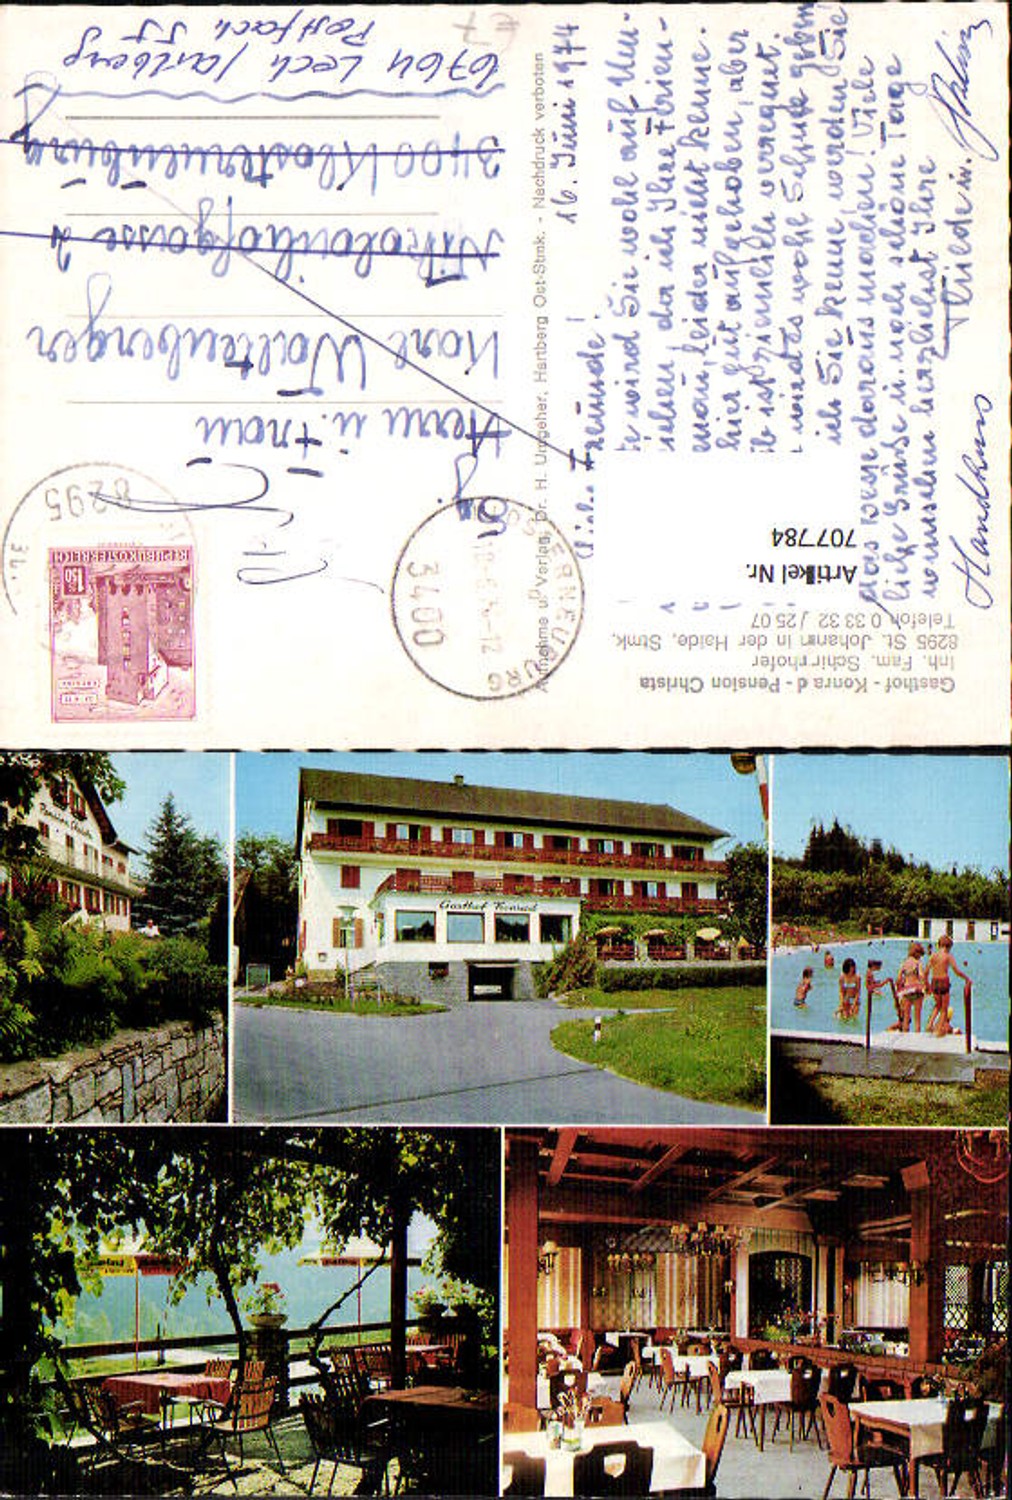 Gasthof - Konrad - Pension Christa
Inh. Fam. Schirnhofer
8295 St. Johann in der Haide, Stmk.
Telefon 0 33 32 / 25 07
Artikel Nr.
707784
16. Juni 1974
Freunde!
wird Sie wohl auf
sehen, da ich Ihre Ferien-
leider nicht kenne.
hier gut aufgehoben, aber
ist ziemlich verregnet.
wird es wohl Schule geben
ich Sie kenne werden Sie
das beste daraus machen! Viele
liebe Grüße u. noch schöne Tage
wünschen herzlichst Ihre
Aufnahme u. Verlag: Dr. H. Umgeher, Hartberg Ost-Stmk. - Nachdruck verboten
REPUBLIK ÖSTERREICH
1.50
8295
3400
Herrn u. Frau
Karl Waltenberger
Nikolaihofgasse 2
3400 Klosterneuburg
6764 Lech /Arlberg
Postfach 55
Pension Christa
Gasthof Konrad